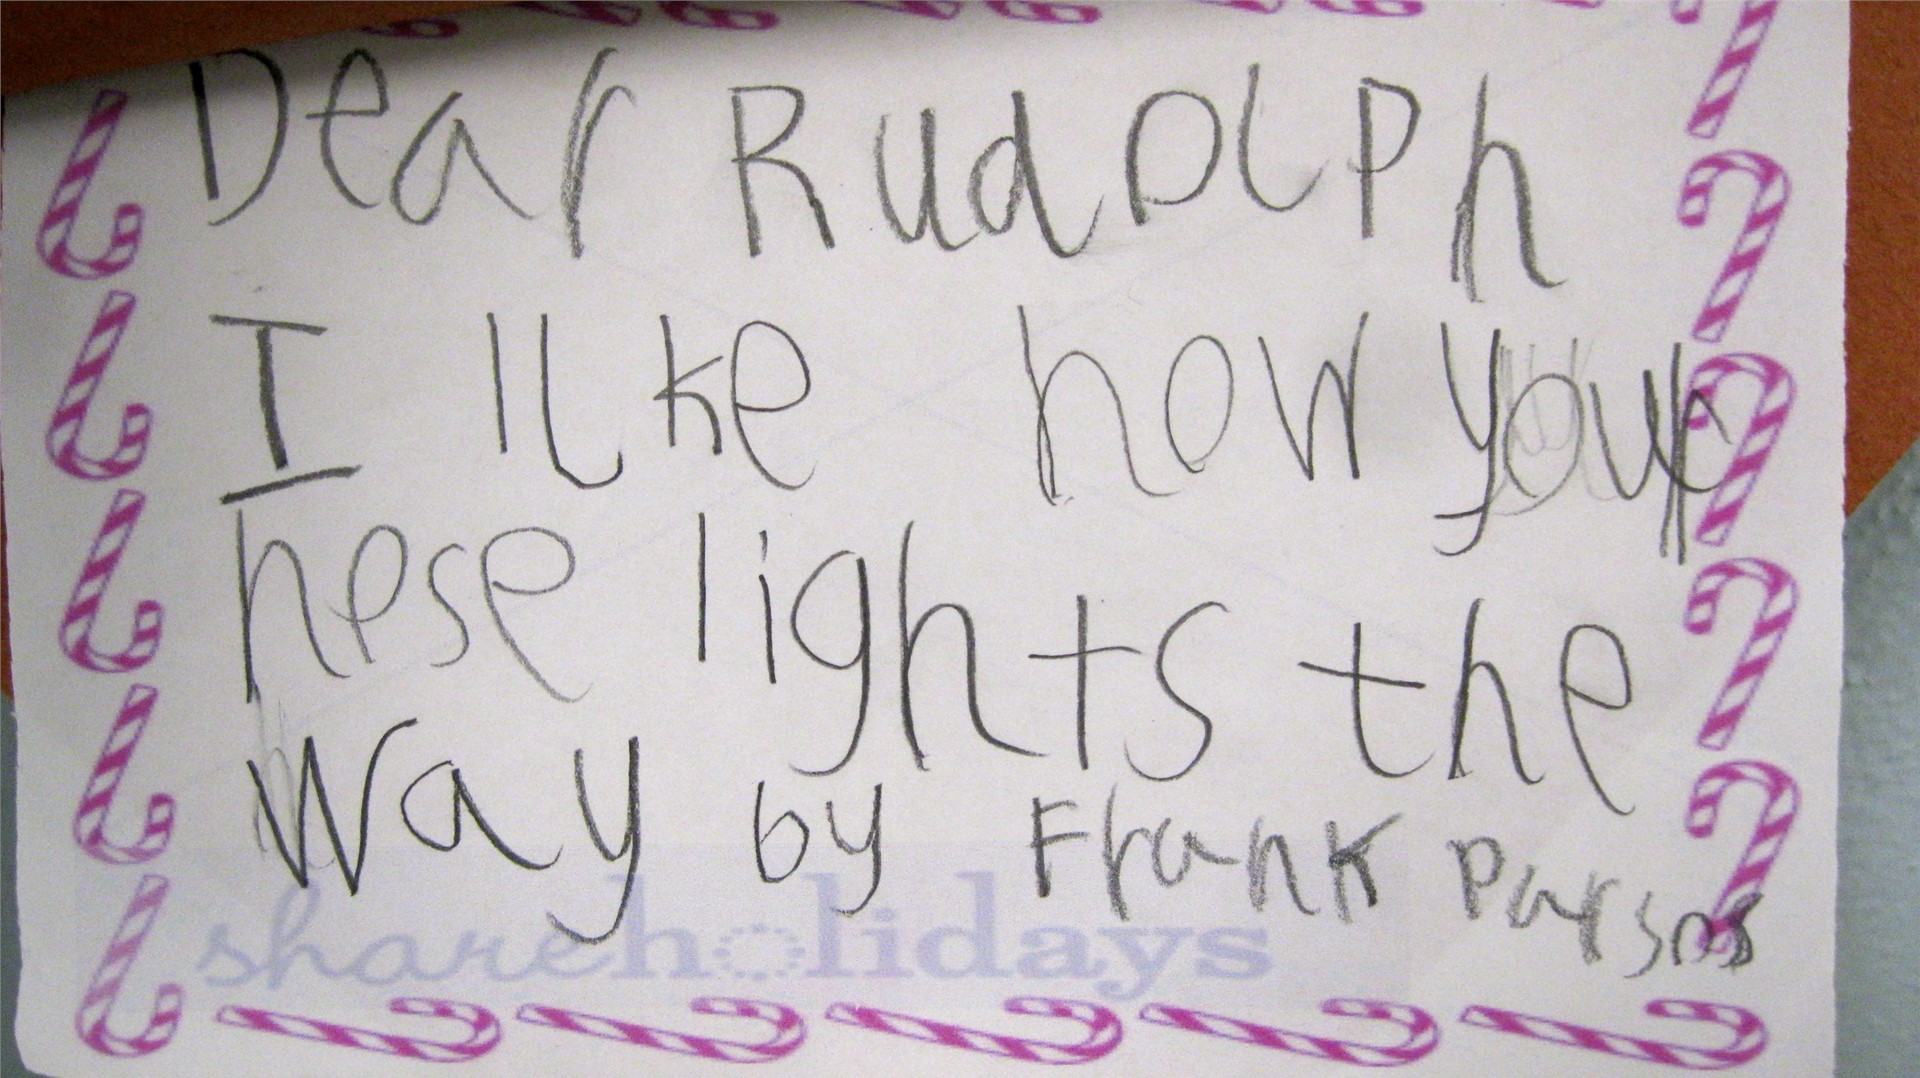 Dear Rudolph
I like how your
nose lights the
way by Frank Parsns
shareholidays